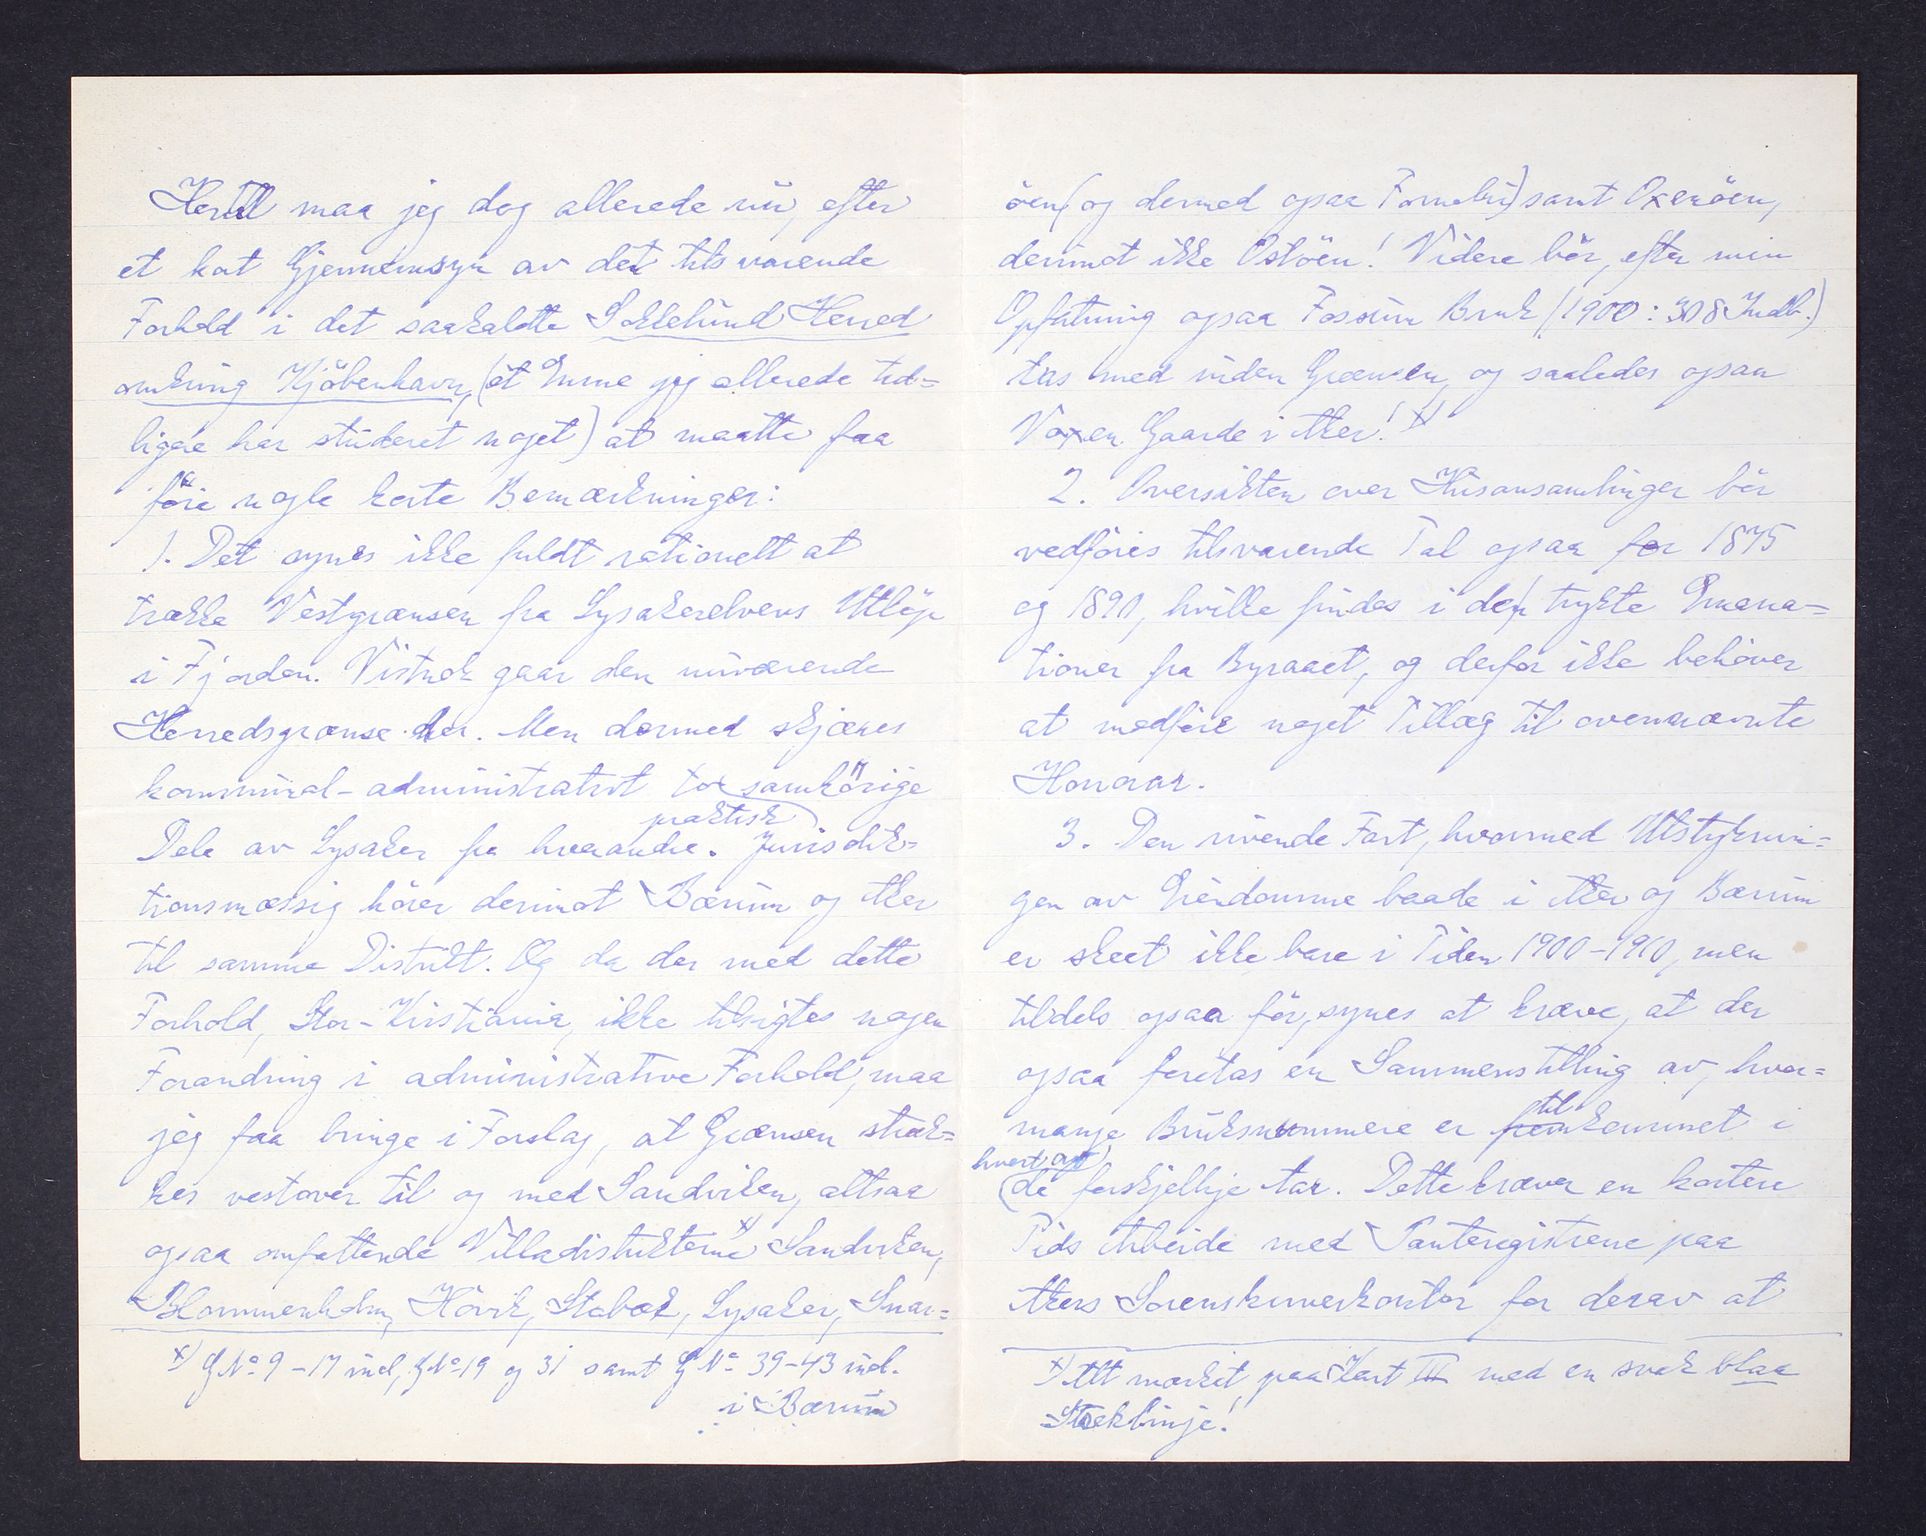 Hertil maa jeg dog allerede nu, efter
et kort Gjennemsyn av det tilsvarende
Forhold i det saakaldte Sokkelund Herred
omkring Kjöbenhavn, (et Emne jeg allerede tid=
ligere har studeret noget) at maatte faa
föie nogle korte Bemærkninger:
1. Det synes ikke fuldt rationelt at
trække Vestgrænsen fra Lysakerelvens Utlöp
i Fjorden. Vistnok gaar den nuværende
Herredsgrænse der. Men dermed skjæres
kommunal-administrativt to samhörige
praktisk
Dele av Lysaker fra hverandre. Jurisdik=
tionsmæssig hörer derimot Bærum og Aker
til samme Distrikt. Og da der med dette
Forhold, Stor-Kristiania, ikke tilsigtes nogen
Forandring i administrative Forhold, maa
jeg faa bringe i Forslag, at Grænsen stræk=
kes vestover til og med Sandviken, altsaa
ogsaa omfattende Villadistrikterne x) Sandviken,
Blommenholm, Hövik, Stabæk, Lysaker, Snar=
x) G No 9-17 incl, G No 19 og 31 samt G No 39-43 incl.
i Bærum
öen (og dermed ogsaa Fornebu) samt Oxenöen,
derimot ikke Ostöen! Videre bör, efter min
Opfatning ogsaa Fossum Bruk (1900: 308 Indb.)
tas med inden Grænsen, og saaledes ogsaa
Voxen Gaarde i Aker! x)
2. Oversikten over Husansamlinger bör
vedföies tilsvarende Tal ogsaa for 1875
og 1890, hvilke findes i den trykte Emana=
tioner fra Byraaet, og derfor ikke behöver
at medföre noget Tillæg til ovennævnte
Honorar.
3. Den rivende Fart, hvormed Utstyknin=
gen av Eiendomme baade i Aker og Bærum
er skeet ikke bare i Tiden 1900-1910, men
tildels ogsaa för, synes at kræve, at der
ogsaa foretas en Sammenstilling av, hvor=
mange Bruksnummere er til
fremkommet i
hvert av
de forskjellige Aar. Dette kræver en kortere
Tids Arbeide med Panteregistrene paa
Akers Sorenskriverkontor for derav at
x) Alt mærket paa Kart III med en svak blaa
Streklinje!